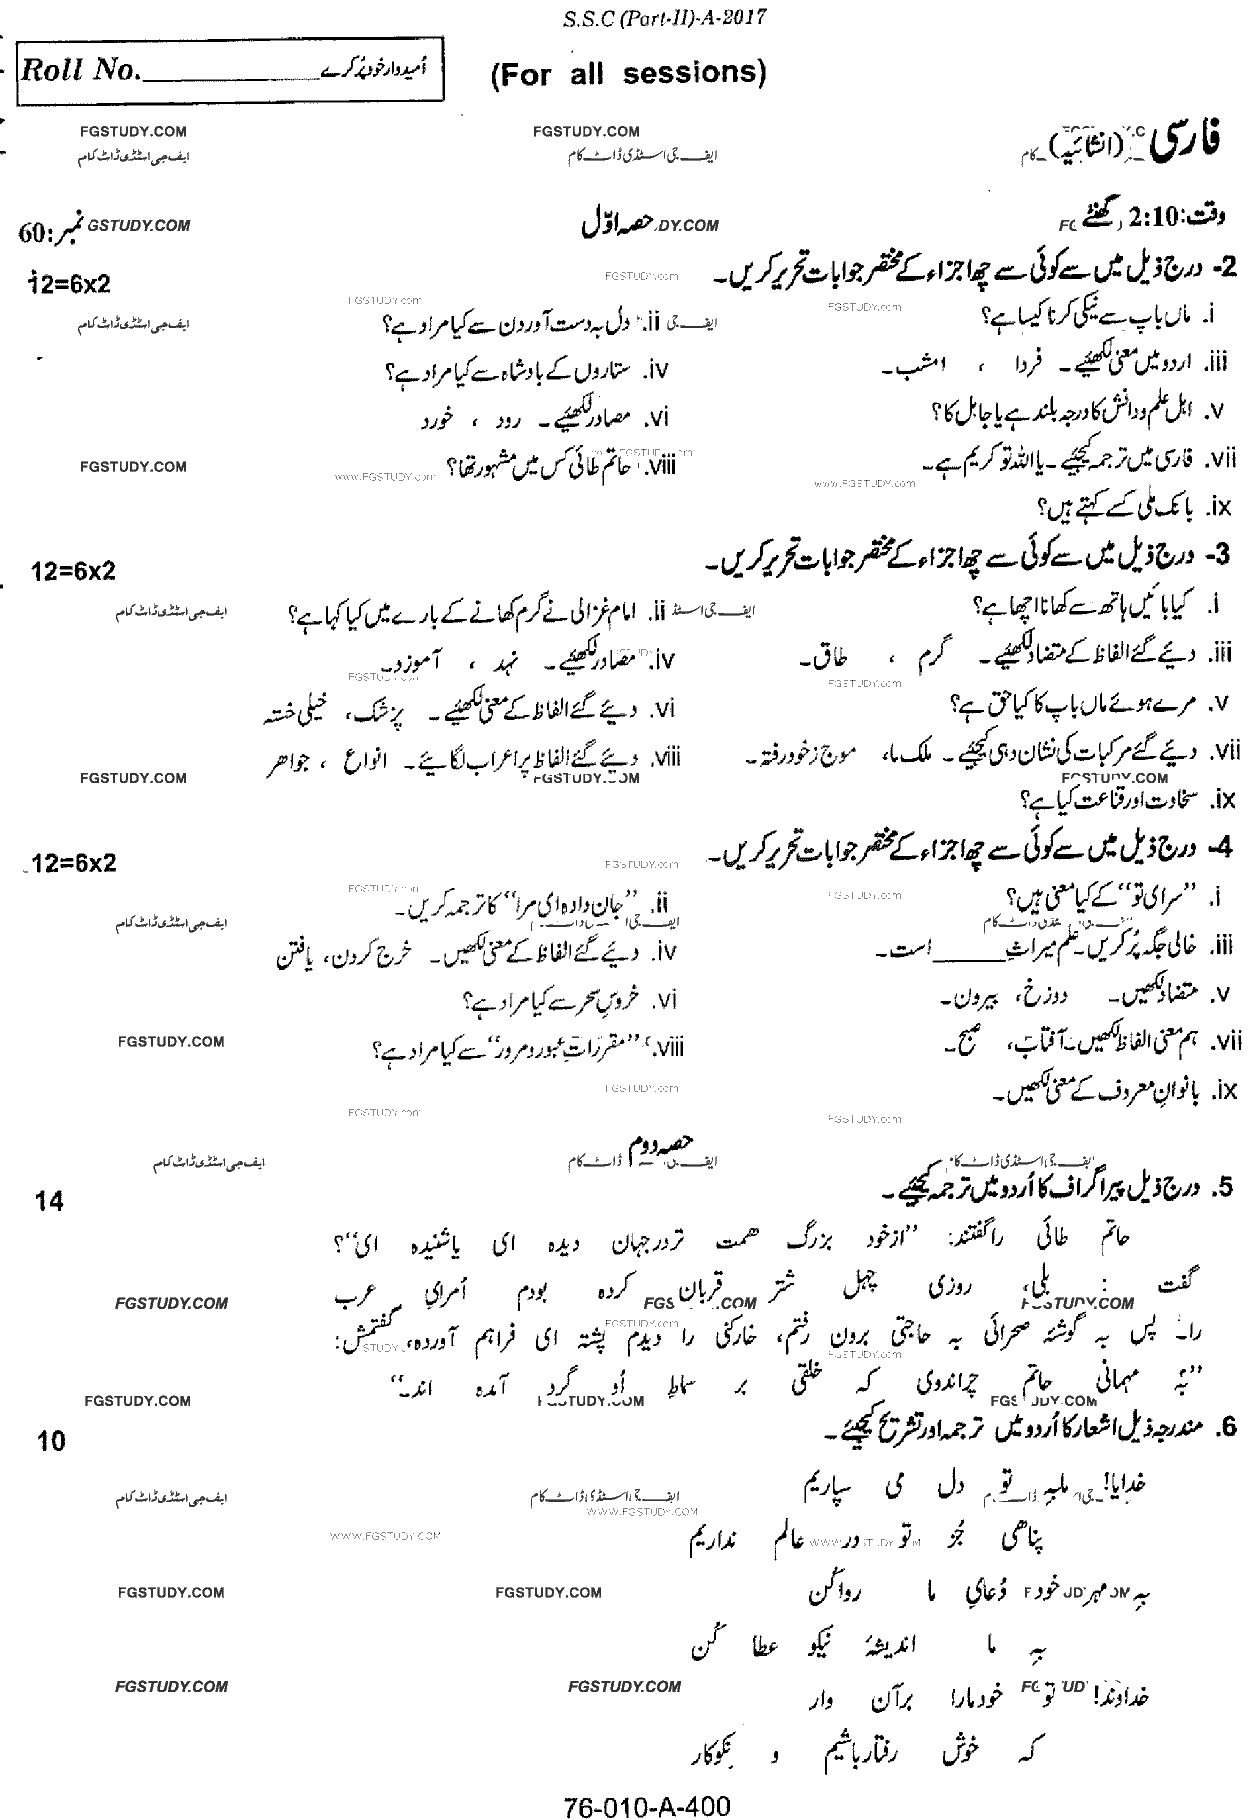 S.S.C (Part-II)-A-2017
Roll No.____________ اُمیدوار خود پُر کرے
(For all sessions)
FGSTUDY.COM FGSTUDY.COM فارسی (انشائیہ)
ایف جی اسٹڈی ڈاٹ کام ایف جی اسٹڈی ڈاٹ کام
وقت: 2:10 گھنٹے حصہ اوّل نمبر: 60
2- درج ذیل میں سے کوئی سے چھ اجزاء کے مختصر جوابات تحریر کریں۔ 12=6x2
i. ماں باپ سے نیکی کرنا کیسا ہے؟ ii. دل بہ دست آوردن سے کیا مراد ہے؟
iii. اردو میں معنی لکھیئے۔ فردا ، امشب۔ iv. ستاروں کے بادشاہ سے کیا مراد ہے؟
v. اہل علم و دانش کا درجہ بلند ہے یا جاہل کا؟ vi. مصادر لکھیئے۔ رود ، خورد
vii. فارسی میں ترجمہ کیجیئے۔ یا اللہ تو کریم ہے۔ viii. حاتم طائی کس میں مشہور تھا؟
FGSTUDY.COM
ix. بانک ملی کسے کہتے ہیں؟
3- درج ذیل میں سے کوئی سے چھ اجزاء کے مختصر جوابات تحریر کریں۔ 12=6x2
i. کیا بائیں ہاتھ سے کھانا اچھا ہے؟ ii. امام غزالی نے گرم کھانے کے بارے میں کیا کہا ہے؟
iii. دیئے گئے الفاظ کے متضاد لکھیئے۔ گرم ، طاق۔ iv. مصادر لکھیئے۔ نہد ، آموزد۔
v. مرے ہوئے ماں باپ کا کیا حق ہے؟ vi. دیئے گئے الفاظ کے معنی لکھیئے۔ پزشک، خیلی خستہ
vii. دیئے گئے مرکبات کی نشان دہی کیجیئے۔ ملک ما، موج ز خود رفتہ۔ viii. دیئے گئے الفاظ پر اعراب لگائیے۔ انواع ، جواھر
FGSTUDY.COM FGSTUDY.COM FGSTUDY.COM
ix. سخاوت اور قناعت کیا ہے؟
4- درج ذیل میں سے کوئی سے چھ اجزاء کے مختصر جوابات تحریر کریں۔ 12=6x2
i. ”سرای تو“ کے کیا معنی ہیں؟ ii. ”جان دادہ ای مرا“ کا ترجمہ کریں۔
iii. خالی جگہ پُر کریں۔ علم میراثِ ______ است۔ iv. دیئے گئے الفاظ کے معنی لکھیں۔ خرج کردن، یافتن
v. متضاد لکھیں۔ دوزخ، بیرون۔ vi. خروسِ سحر سے کیا مراد ہے؟
vii. ہم معنی الفاظ لکھیں۔ آفتاب، صبح۔ viii. ”مقررات عبور و مرور“ سے کیا مراد ہے؟
FGSTUDY.COM
ix. بانوانِ معروف کے معنی لکھیں۔
حصہ دوم
5. درج ذیل پیراگراف کا اُردو میں ترجمہ کیجیئے۔ 14
حاتم طائی را گفتند: ”از خود بزرگ ھمت تر در جہان دیدہ ای یا شنیدہ ای“؟
گفت : بلی، روزی چہل شتر قربان کردہ بودم اُمرایِ عرب
را۔ پس بہ گوشۂ صحرائی بہ حاجتی برون رفتم، خارکنی را دیدم پشتہ ای فراہم آوردہ، گفتمش:
”بہ مہمانی حاتم چرا ندوی کہ خلقی بر سماطِ اُو گرد آمدہ اند۔“
FGSTUDY.COM FGSTUDY.COM FGSTUDY.COM
6. مندرجہ ذیل اشعار کا اُردو میں ترجمہ اور تشریح کیجیئے۔ 10
خدایا! ما بہ تو دل می سپاریم
پناھی جُز تو در عالم نداریم
بہ مہر خود دُعایِ ما روا کُن
بہ ما اندیشۂ نیکو عطا کُن
خداوندا! تو خود ما را بر آن دار
کہ خوش رفتار باشیم و نکوکار
76-010-A-400